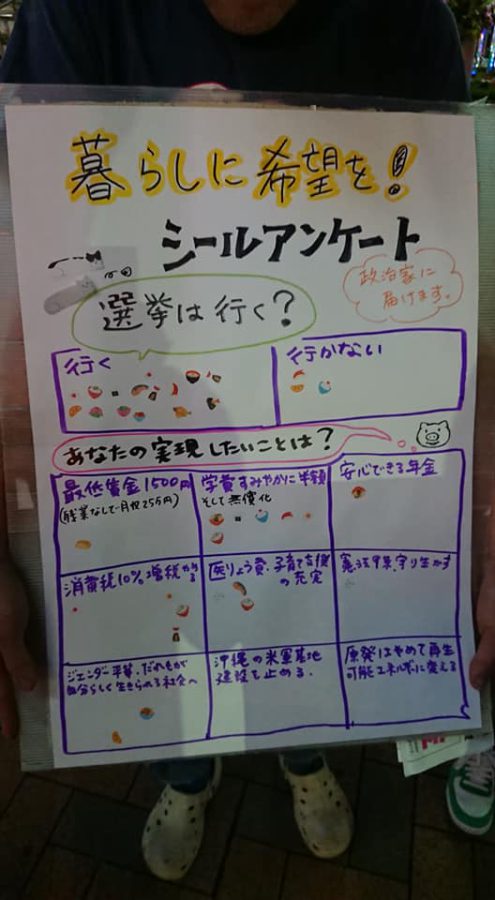 暮らしに希望を!
シールアンケート
政治家に
届けます。
選挙は行く?
行く
行かない
あなたの実現したいことは?
最低賃金1500円
(残業なしで月収25万円)
学費すみやかに半額
そして無償化
安心できる年金
消費税10%増税
医りょう費、子育て支援
の充実
憲法9条、守り生かす
ジェンダー平等、だれもが
自分らしく生きられる社会へ
沖縄の米軍基地
建設を止める.
原発はやめて再生
可能エネルギーに変える